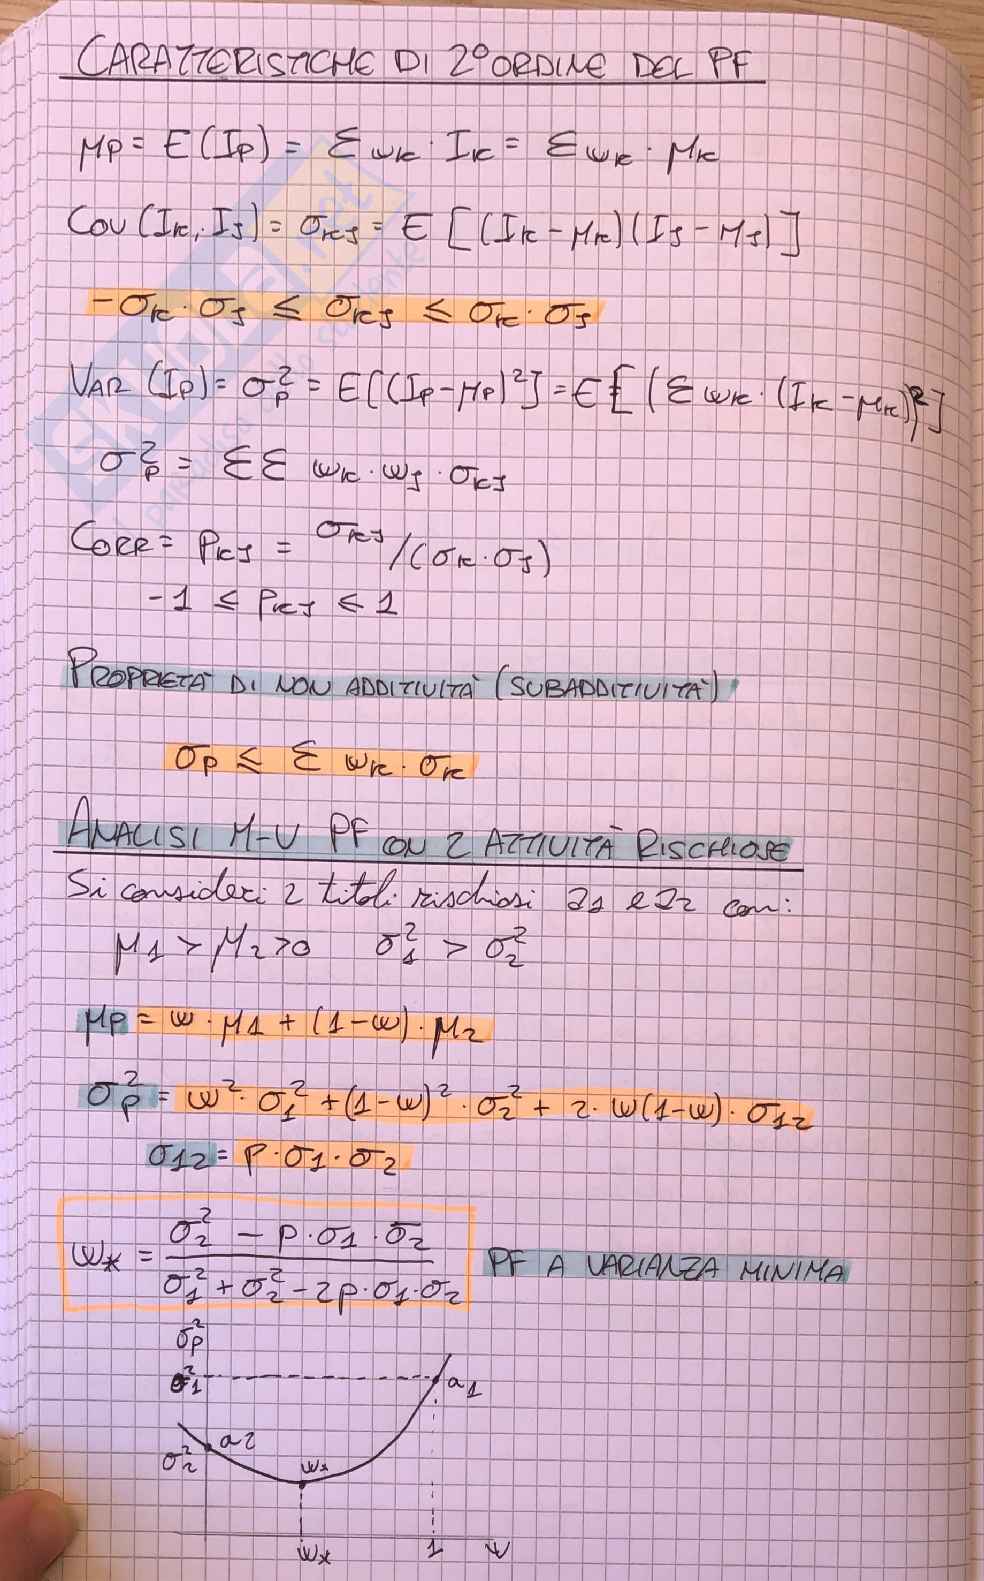 CARATTERISTICHE DI 2° ORDINE DEL PF
μp = E(Ip) = Σ ωk · Ik = Σ ωk · μk
COV (Ik, Ij) = σkj = E [(Ik - μk)(Ij - μj)]
-σk · σj ≤ σkj ≤ σk · σj
VAR (Ip) = σ²p = E[(Ip - μp)²] = E[(Σ ωk · (Ik - μk))²]
σ²p = ΣΣ ωk · ωj · σkj
CORR = ρkj = σkj/(σk · σj)
-1 ≤ ρkj ≤ 1
PROPRIETÀ DI NON ADDITIVITÀ (SUBADDITIVITÀ)
σp ≤ Σ ωk · σk
ANALISI M-V PF CON 2 ATTIVITÀ RISCHIOSE
Si consideri 2 titoli rischiosi a1 e a2 con:
μ1 > μ2 > 0 σ²1 > σ²2
μp = ω · μ1 + (1-ω) · μ2
σ²p = ω² · σ²1 + (1-ω)² · σ²2 + 2 · ω(1-ω) · σ12
σ12 = ρ · σ1 · σ2
ω* = (σ²2 - ρ · σ1 · σ2) / (σ²1 + σ²2 - 2ρ · σ1 · σ2) PF A VARIANZA MINIMA
σ²p
σ²1 a1
a2
σ²2 ω*
ω* 1 ω
SKUOLA.net